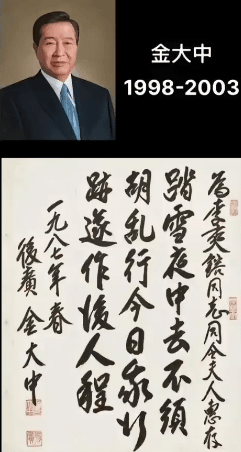 金大中
1998-2003
為李奭同志同令夫人惠存
踏雪夜中去不須
胡乱行今日我行
跡遂作後人程
一九八七年春
後廣 金大中